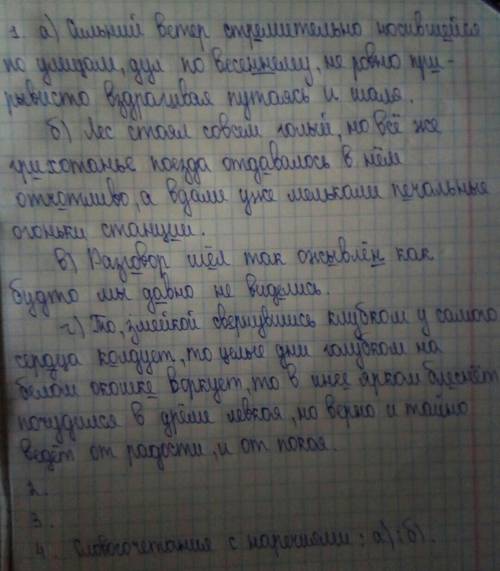 1. а) Сильний ветер стремительно носившейся
по улицам, дул по весеннему, не ровно при-
рывисто вздрагивая путаясь и шаля.
б) Лес стоял совсем голый, но всё же
грихотанье поезда отдавалось в нём
отчотливо, а вдали уже мелькали печальные
огоньки станции.
в) Разговор шёл так оживлён как
будто мы давно не виделись.
г) То, змейкой свернувшись клубком у самого
сердца колдует, то целые дни голубком на
белом окошке воркует, то в инее ярком блеснёт
почудился в дреме левкоя, но верно и тайно
ведёт от радости, и от покоя.
2.
3.
4. Словосочетания с наречиями: а) б).